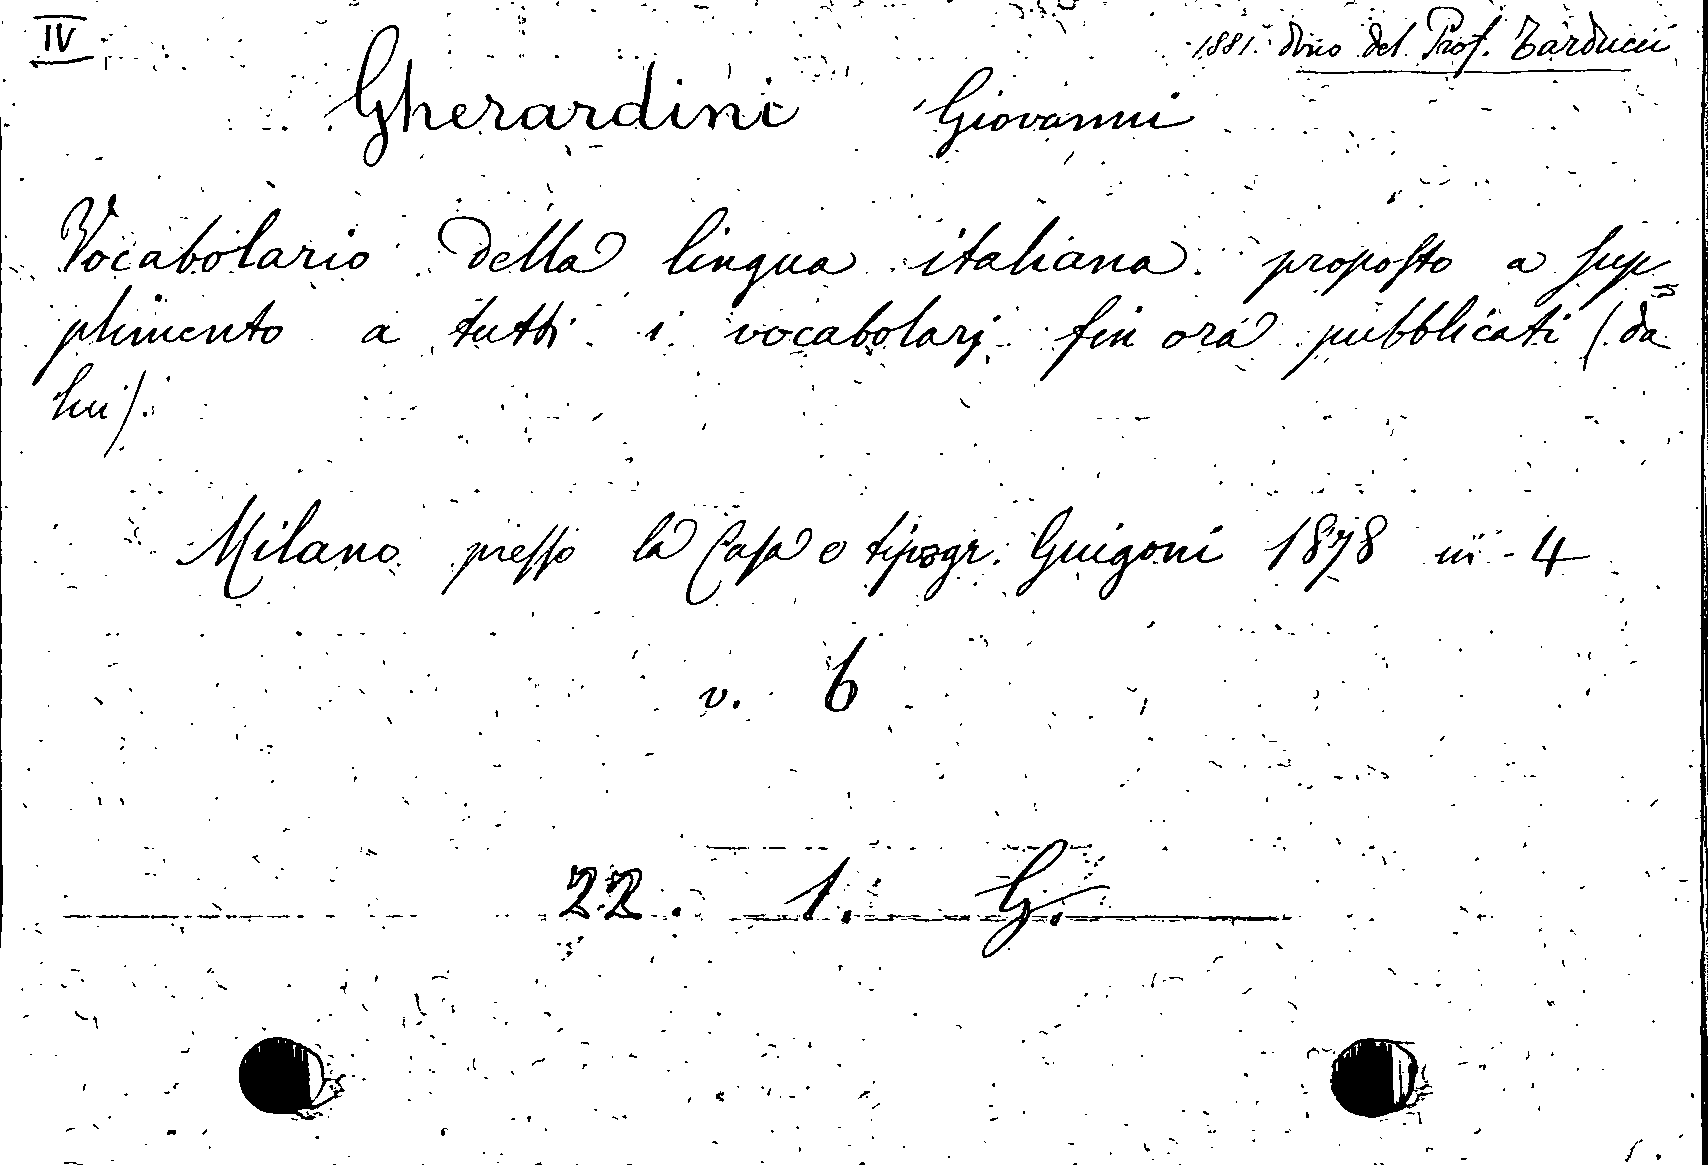 IV
1881. dono del Prof. Tarducci
Gherardini Giovanni
Vocabolario della lingua italiana proposto a sup=
plimento a tutti i vocabolarj fin ora pubblicati (da
lui).
Milano presso la Casa e tipogr. Guigoni 1878 in-4
v. 6
22. 1. G.